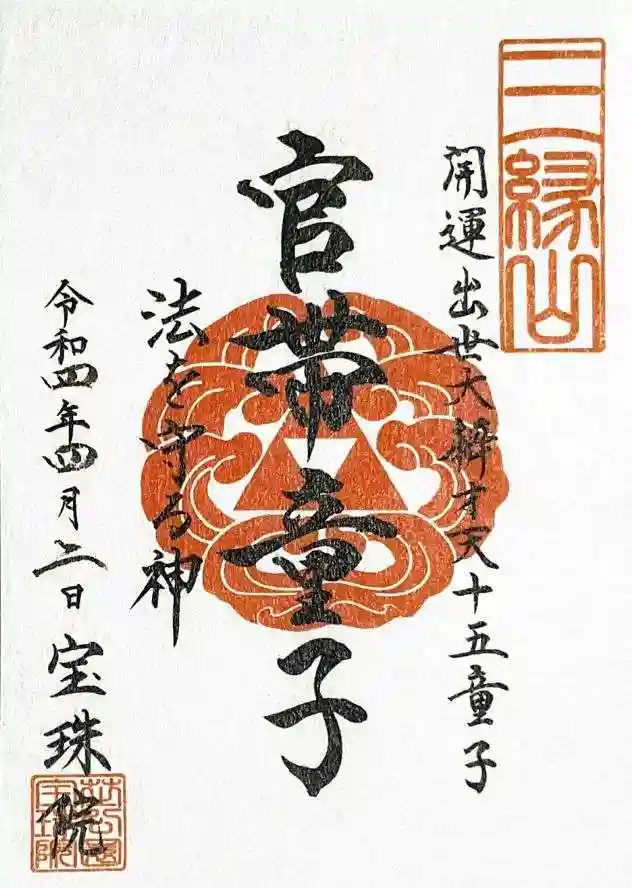 三縁山
開運出世大辨才天十五童子
官帯童子
法を守る神
令和四年四月二日
宝珠院
芝公園
宝珠院